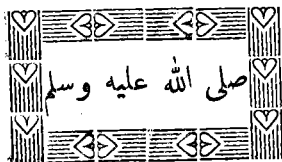 صلى الله عليه وسلم